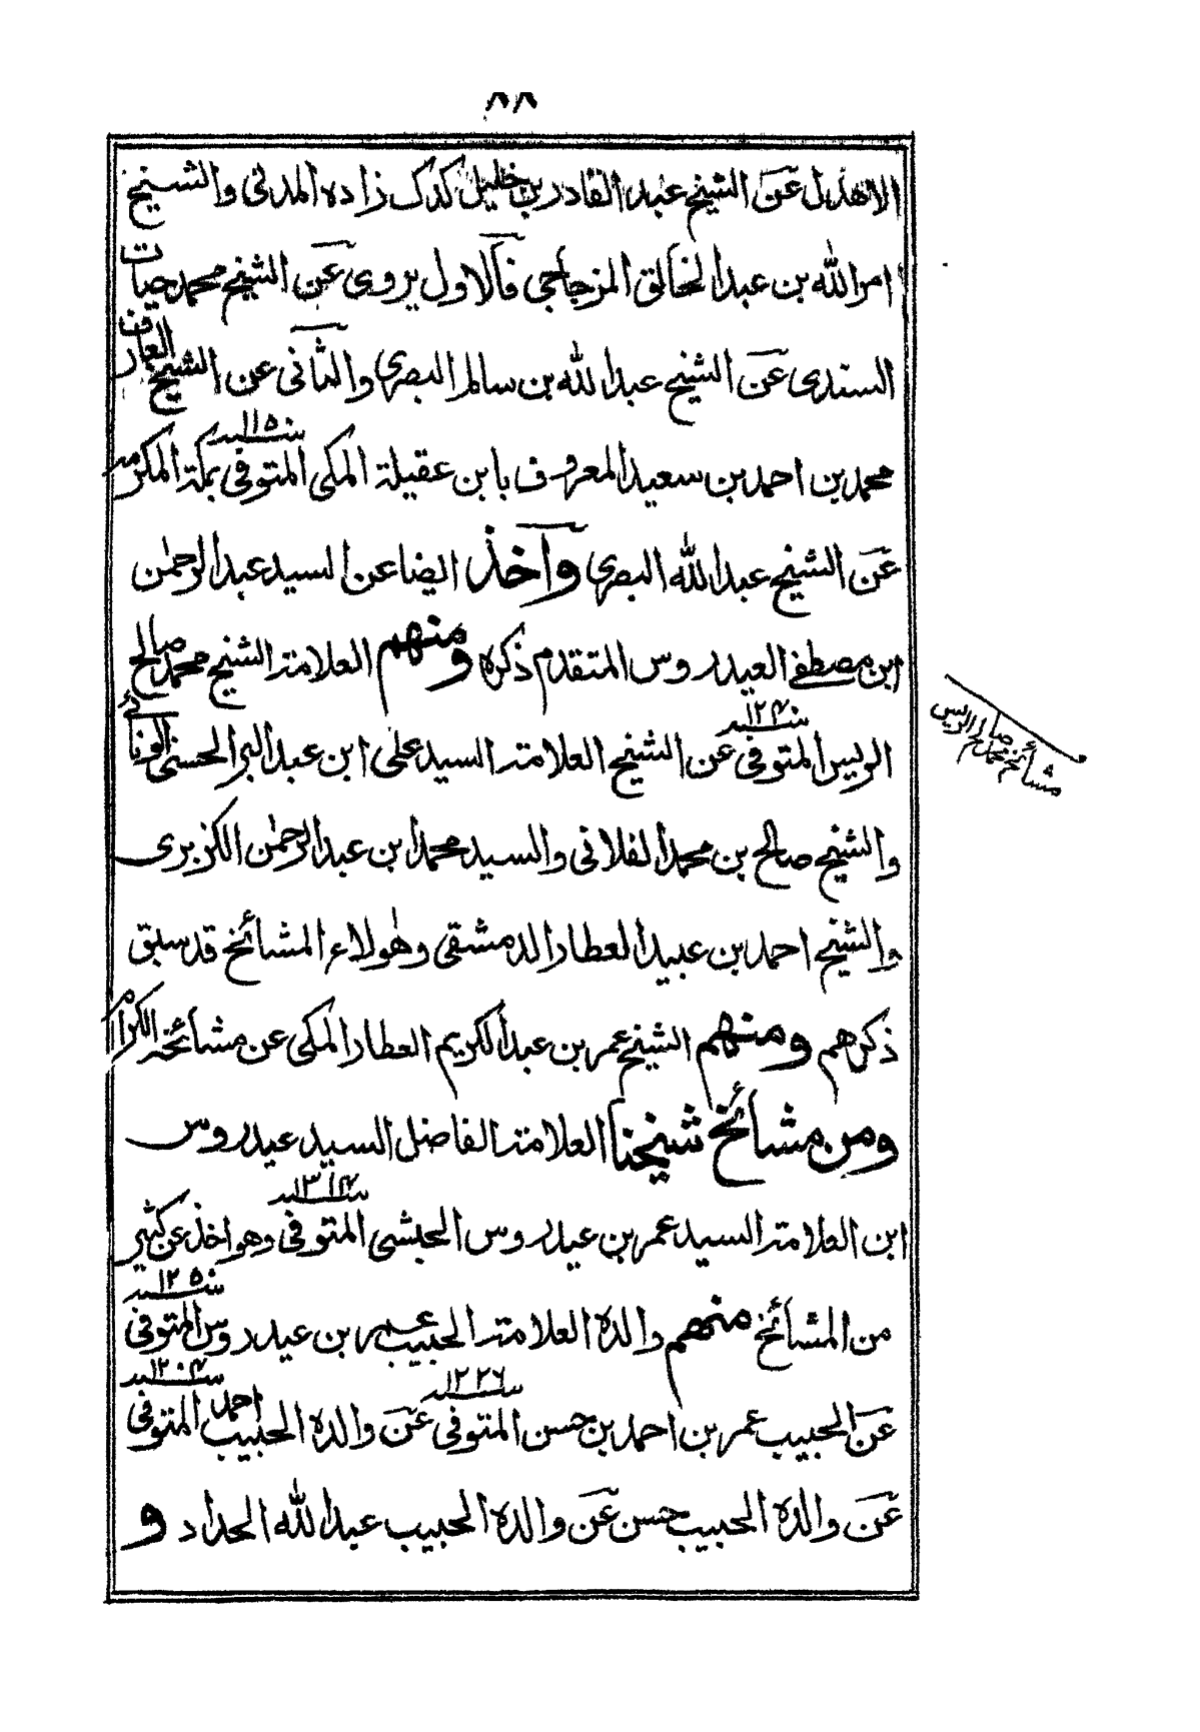 ٨٨
الاهدل عن الشيخ عبد القادر بن خليل كدك زاده المدنى والشيخ
امر الله بن عبد الخالق المزجاجى فالاول يروى عن الشيخ محمد حيات
السندى عن الشيخ عبد الله بن سالم البصرى والثانى عن الشيخ العارف
محمد بن احمد بن سعيد المعروف بابن عقيلة المكى المتوفى بمكة المكرمه
عن الشيخ عبد الله البصرى وأخذ ايضا عن السيد عبد الرحمٰن
ابن مصطفى العيدروس المتقدم ذكره ومنهم العلامة الشيخ محمد صالح
الريس المتوفى سنة ١٢٤٠ عن الشيخ العلامة السيد على ابن عبد البر الحسنى الونائى
والشيخ صالح بن محمد الفلانى والسيد محمد ابن عبد الرحمٰن الكزبرى
والشيخ احمد بن عبيد العطار الدمشقى وهٰولاء المشائخ قد سبق
ذكرهم ومنهم الشيخ عمر بن عبد الكريم العطار المكى عن مشائخه الكرام
ومن مشائخ شيخنا العلامة الفاضل السيد عيدروس
ابن العلامة السيد عمر بن عيدروس الحبشى المتوفى سنة ١٣١٤ وهو اخذ عن كثير
من المشائخ منهم والده العلامة الحبيب عمر بن عيدروس المتوفى سنة ١٢٥٠
عن الحبيب عمر بن احمد بن حسن المتوفى سنة ١٢٢٦ عن والده الحبيب احمد المتوفى سنة ١٢٠٤
عن والده الحبيب حسن عن والده الحبيب عبد الله الحداد و
مشائخ محمد صالح الريس